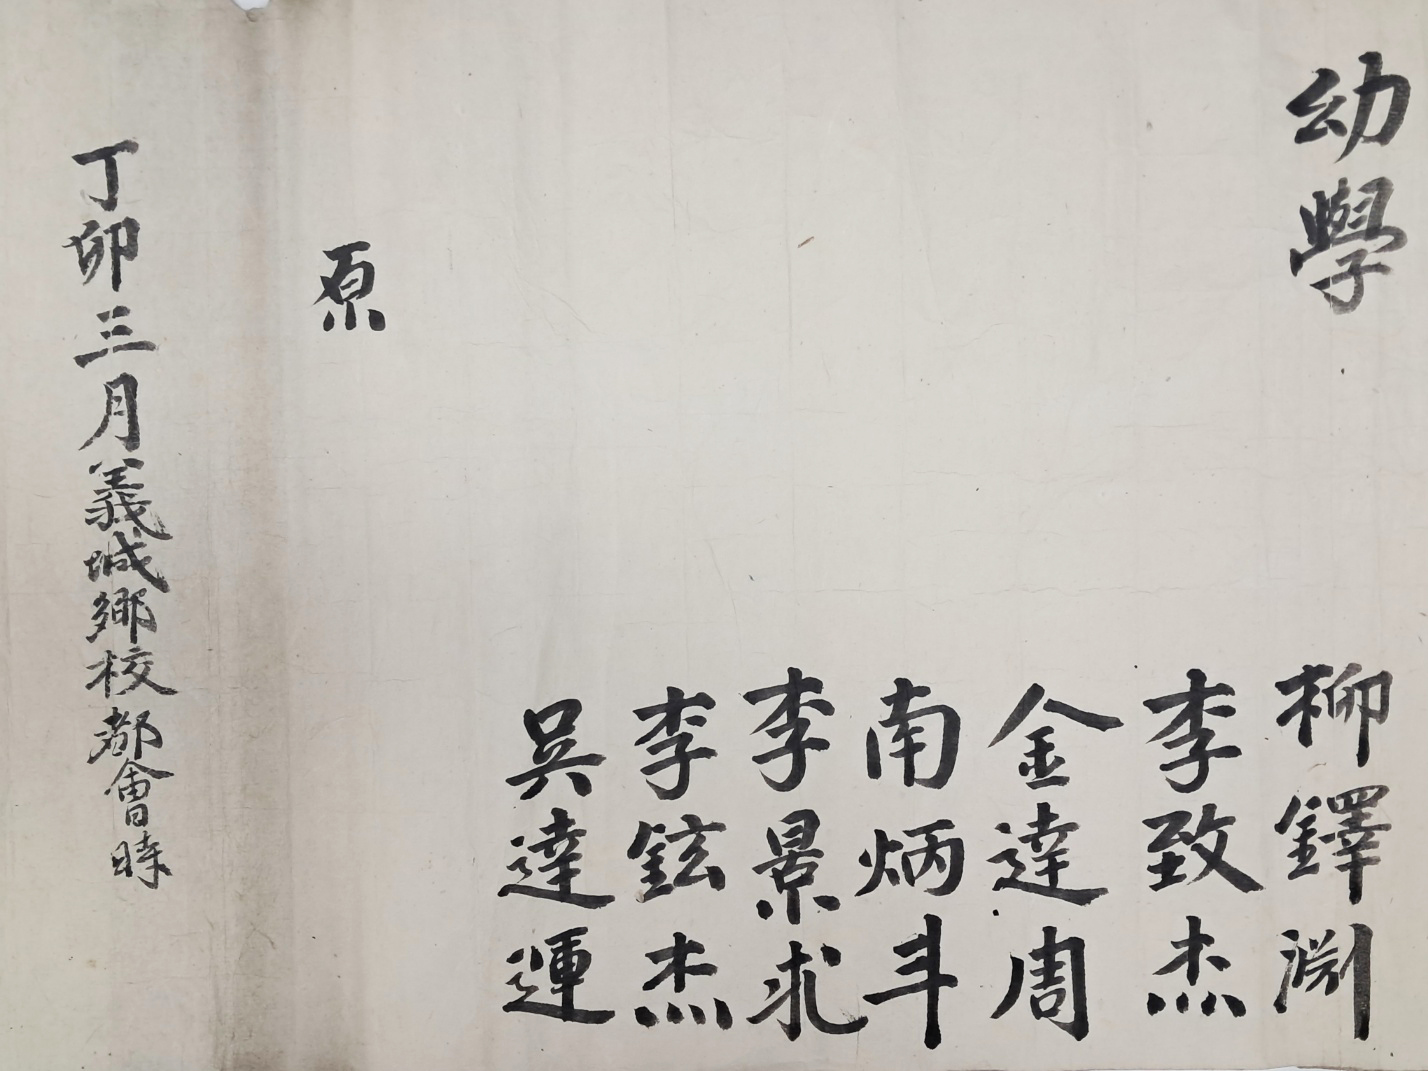 幼學
柳鐸淵
李致杰
金達周
南炳斗
李景求
李鉉杰
吳達運
原
丁卯三月義城鄉校都會時